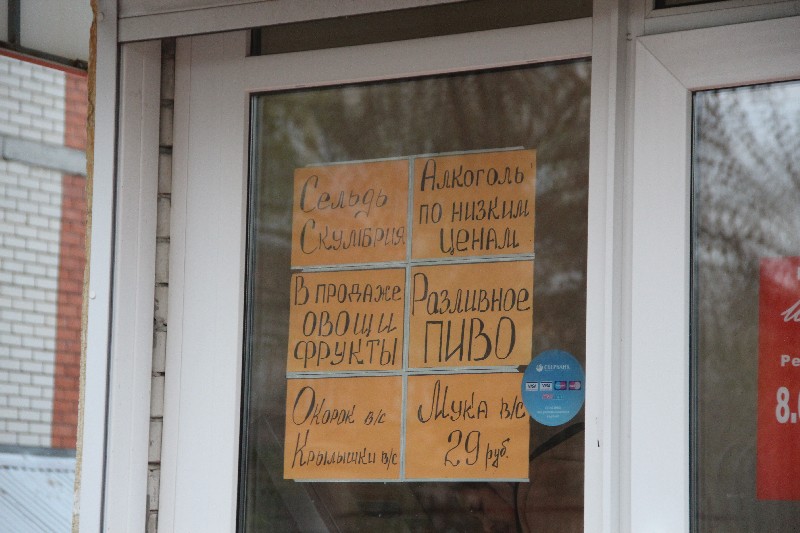 Сельдь
Скумбрия
Алкоголь
по низким
ценам
В продаже
овощи
фрукты
Разливное
ПИВО
Окорок в/с
Крылышки в/с
Мука в/с
29 руб.
СБЕРБАНК
VISA VISA
Ре
8.